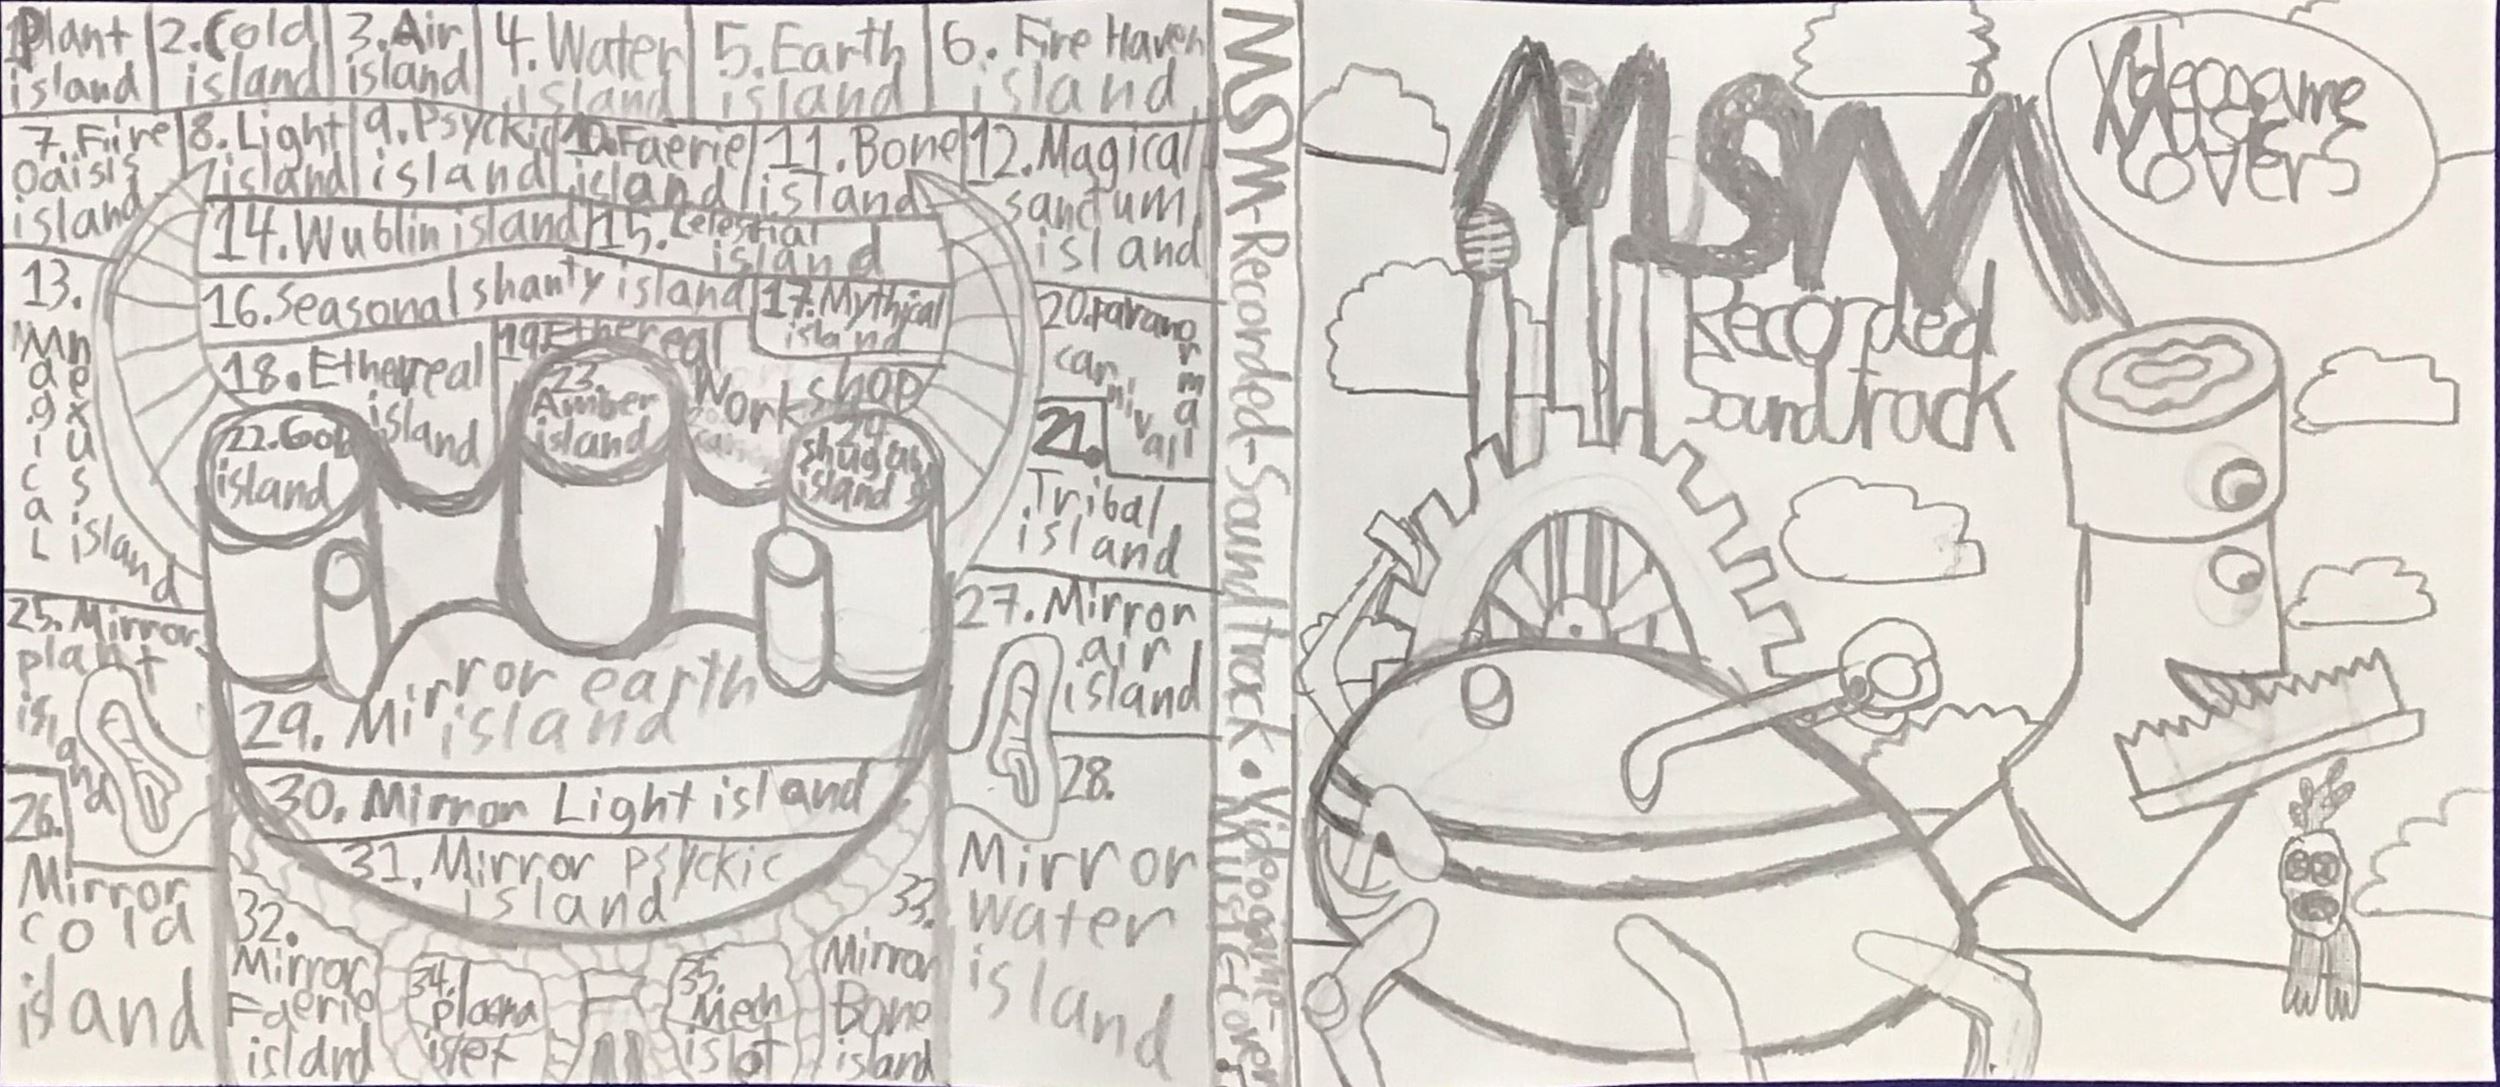 1.Plant
island
2.Cold
island
3.Air
island
4.Water
island
5.Earth
island
6. Fire Haven
island
7.Fire
Oaisis
island
8.Light
island
9.Psyckic
island
10.Faerie
island
11.Bone
island
12.Magical
sanctum
island
13.
Magical
Nexus
island
14.Wublin island
15.Celestial
island
16.Seasonal shanty island
17.Mythical
island
18.Ethereal
island
19.Ethereal
Workshop
20.Paranormal
carnivall
21.
Tribal
island
22.Gold
island
23.
Amber
island
24.
Shugabush
island
25.Mirror
plant
island
26.
Mirror
cold
island
27.Mirror
air
island
28.
Mirror
water
island
29. Mirror earth
island
30. Mirror Light island
31. Mirror psyckic
island
32.
Mirror
Faerie
island
33.
Mirror
Bone
island
34.
plasma
islet
35.
Mech
islet
MSM-Recorded-Soundtrack • Videogame-
Music-covers
MSM
Recorded
Soundtrack
Videogame
Music
covers